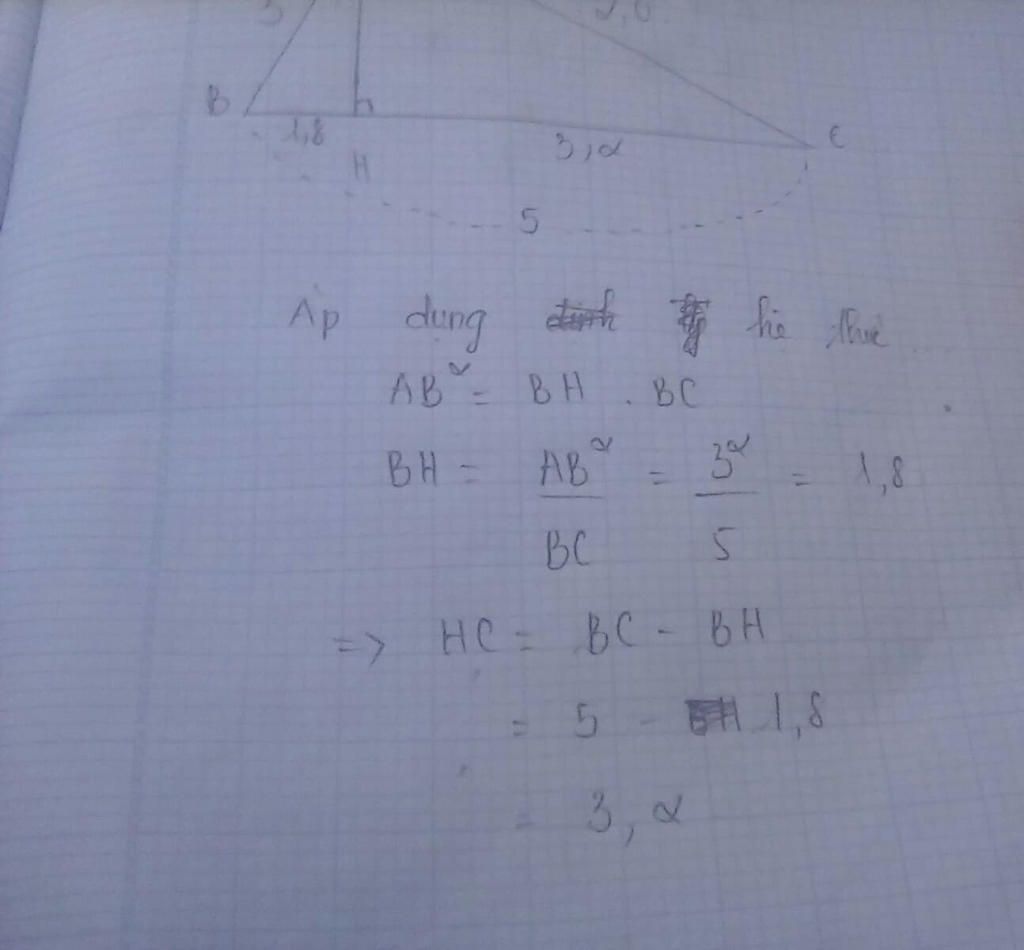 3
B
1,8
H
3,2
C
5
Áp dụng hệ thức
AB² = BH . BC
BH = AB² / BC = 3² / 5 = 1,8
=> HC = BC - BH
= 5 - 1,8
= 3,2